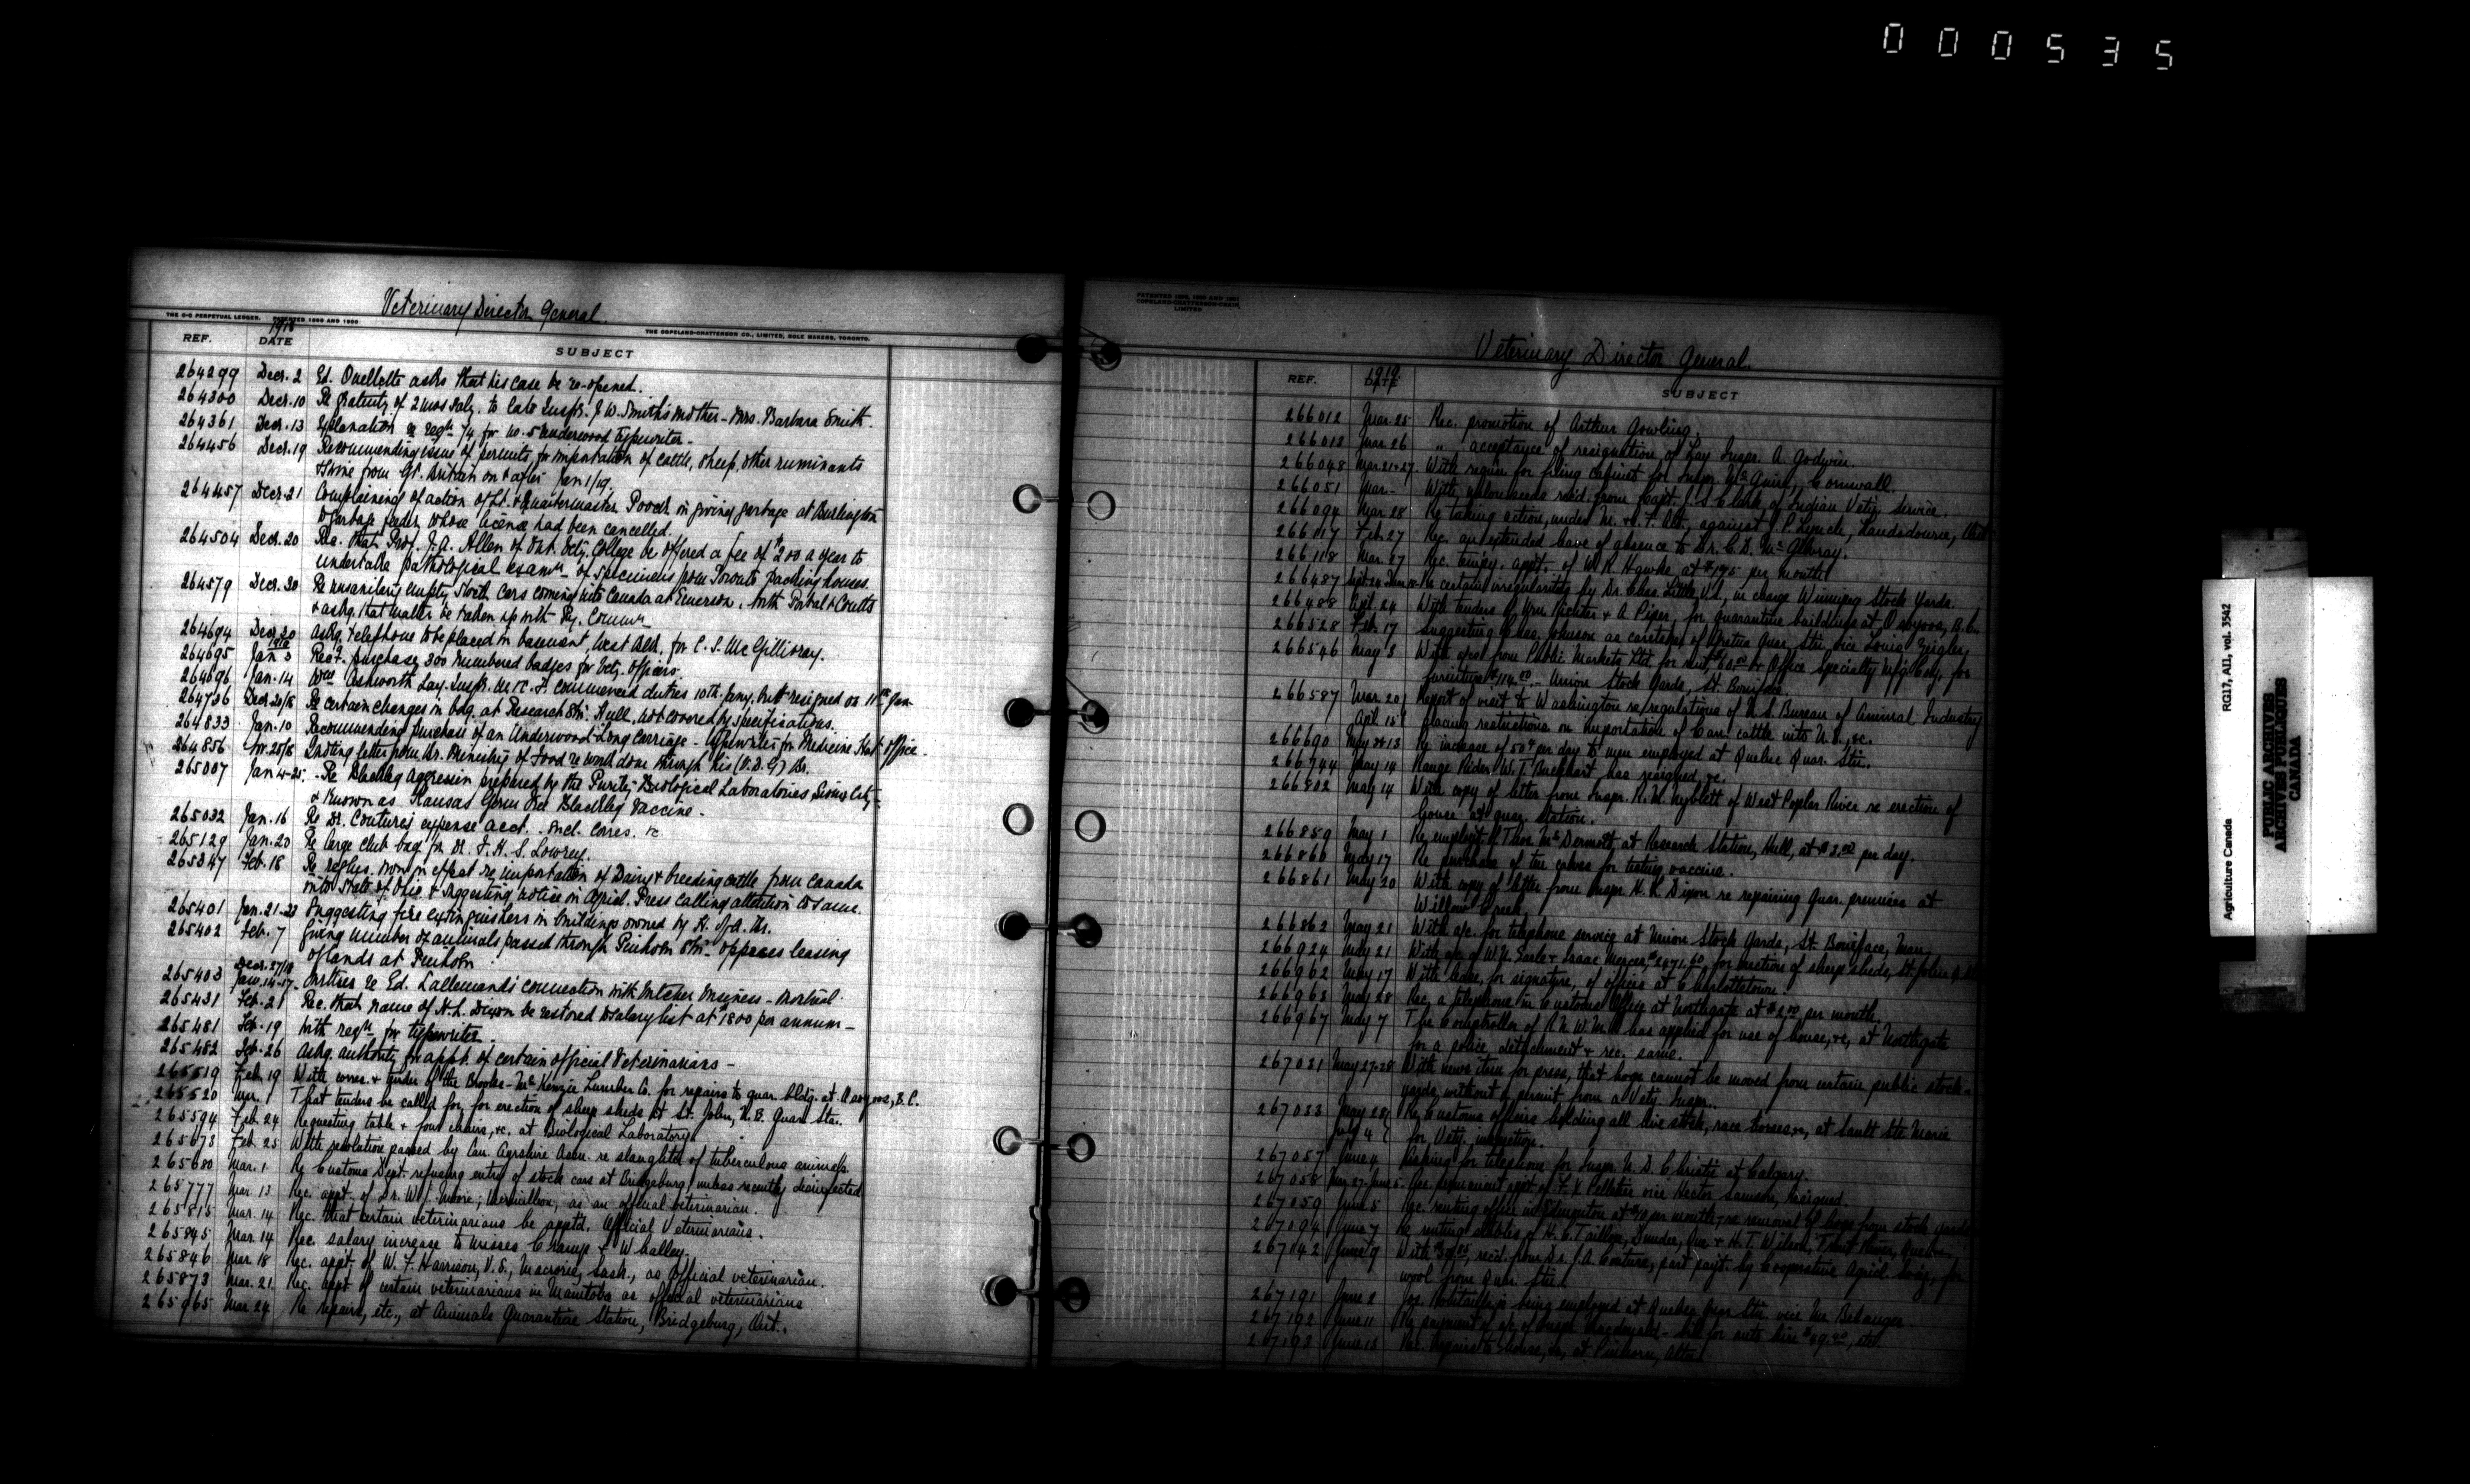 000535
Veterinary Director General
THE C-C PERPETUAL LEDGER. PATENTED 1899 AND 1900
THE COPELAND-CHATTERSON CO., LIMITED, SOLE MAKERS, TORONTO.
REF. 1918 DATE SUBJECT
264299 Decr. 2 Ed. Ouellette asks that his case be re-opened.
264300 Decr. 10 Re gratuity of 2 mos Saly. to late Inspr. J. W. Smith's mother - Mrs. Barbara Smith.
264361 Decr. 13 Explanation re reqn for No. 5 Underwood Typewriter -
264456 Decr. 19 Recommending issue of permits for importation of cattle, sheep, other ruminants
& swine from Gt. Britain on & after Jan 1/19.
264457 Decr. 21 Complaining of action of Lt. & Quartermaster Pooch in giving garbage at Burlington
to garbage feeder whose license had been cancelled.
264504 Decr. 20 Rec. that Prof. J. A. Allen of Ont. Vety. College be offered a fee of $200 a year to
undertake pathological examn of specimens from Toronto packing houses.
264579 Decr. 30 Re unsanitary empty Stock Cars coming into Canada at Emerson, North Portal & Coutts
& askg. that matter be taken up with Ry. Commn
264694 Decr. 20 Askg. telephone to be placed in basement, West Blk. for C. S. McGillivray.
264695 1919 Jan 3 Reqt. purchase 300 numbered badges for Vety. Officers.
264696 Jan. 14 Wm Ashworth Lay. Inspr. M. & C. F. commenced duties 10th Jany. but resigned on 11th Jan
264736 Decr. 20/18 Re certain changes in bdg. at Research Stn. Hull, not covered by specifications.
264833 Jan. 10 Recommending purchase of an Underwood Long Carriage - Typewriter for Medicine Hat Office.
264856 Nov. 25/18 Quoting letter from Br. Ministry of Food re work done through his (V.D.G.) Br.
265007 Jan 4-25 Re Blackleg aggressin prepared by the Purity Biological Laboratories, Sioux City -
& known as Kansas Germ Free Blackleg Vaccine.
265032 Jan. 16 Re Dr. Couture's expense acct. incl. corres. &c
265129 Jan. 20 Re large club bag for Dr. F. H. S. Lowrey.
265347 Feb. 18 Re reglns. now in effect re importation of Dairy & breeding cattle from Canada
into State of Ohio & suggesting notice in Agricl. Press calling attention to same.
265401 Jan. 21-23 Suggesting fire extinguishers in buildings owned by H. of A. Br.
265402 Feb. 7 Giving number of animals passed through Pinhorn Stn. opposes leasing
of lands at Pinhorn
265403 Decr. 27/18 Jan. 14-17 Writes re Ed. Lallemand's connection with butcher business - Montreal.
265431 Feb. 21 Rec. that name of H. L. Dixon be restored to salary list at $1800 per annum -
265481 Feb. 19 With reqn for typewriter.
265482 Feb. 26 Askg. authority for appt. of certain official Veterinarians -
265519 Feb. 19 With corres. & tender of the Brooks-McKenzie Lumber Co. for repairs to quar. bldg. at Osoyoos, B.C.
265520 Mar. 1 That tenders be called for, for erection of sheep sheds at St. John, N.B. Quar. Sta.
265594 Feb. 24 Requesting table & four chairs, &c. at Biological Laboratory.
265673 Feb. 25 With resolution passed by Can. Ayrshire Assn. re slaughter of tuberculous animals.
265680 Mar. 1 Re Customs Dept. refusing entry of stock cars at Bridgeburg, unless recently disinfected
265777 Mar. 13 Rec. appt. of Dr. W. J. Moore, Vermillion, as an official veterinarian.
265815 Mar. 14 Rec. that certain veterinarians be apptd. Official Veterinarians.
265845 Mar. 14 Rec. salary increase to Misses Cramp & Whalley.
265846 Mar. 18 Rec. appt. of W. F. Harrison, V.S., Macrorie, Sask., as Official veterinarian.
265873 Mar. 21 Rec. appt of certain veterinarians in Manitoba as official veterinarians
265965 Mar. 24 Re repairs, etc., at Animals Quarantine Station, Bridgeburg, Ont..
COPELAND-CHATTERSON-CRAIN, LIMITED
Veterinary Director General.
REF. 1919 DATE SUBJECT
266012 Mar. 25 Rec. promotion of Arthur Gowling.
266013 Mar. 26 " acceptance of resignation of Lay Inspr. A. Godwin.
266048 Mar. 21 & 27 With requn for filing cabinet for Inspr. McGuire, Cornwall.
266051 Mar. - With recd. from Capt. J. S. Clark of Indian Vety. Service.
266094 Mar. 28 Re taking action, under M. & C. F. Act, against J. P. Lynch, Lansdowne, Ont.
266017 Feb. 27 Rec. an extended leave of absence to Dr. C. D. McGilvray.
266118 Mar. 27 Rec. tempy. appt. of W. R. Hawke at $175 per month
266487 Re certain irregularities by Dr. Chas. Little V.S., in charge Winnipeg Stock Yards.
266488 Apl. 24 With tenders of Wm Richter & A. Piper for quarantine buildings at Osoyoos, B.C.
266528 Feb. 17 Suggesting Chas. Johnson as caretaker of Gretna Quar. Stn. vice Louis Zeigler
266546 May 3 With a/cs from Public Markets Ltd. for rent $60.00 & Office Specialty Mfg Coy., for
furniture $114.00 - Union Stock Yards, St. Boniface.
266587 Mar. 20 Apl. 15 Report of visit to Washington re regulations of U.S. Bureau of Animal Industry
placing restrictions on importation of Can. cattle into U.S., &c.
266690 May 8 & 13 Re increase of 50¢ per day to men employed at Quebec Quar. Stn.
266744 May 14 Range Rider W. T. Burkhart has resigned, &c.
266802 May 14 With copy of letter from Inspr. R. M. Nyblett of West Poplar River re erection of
house at quar. station.
266859 May 1 Re employt. of Thos. McDermott at Research Station, Hull, at $3.00 per day.
266860 May 17 Re purchase of two calves for testing vaccine.
266861 May 20 With copy of letter from Inspr H. L. Dixon re repairing quar. premises at
Willow Creek
266862 May 21 With a/c. for telephone service at Union Stock Yards, St. Boniface, Man.
266924 May 21 With a/c of W. N. Earle & Isaac Mercer, $2471.60 for erection of sheep sheds, St. John,
266962 May 17 With lease, for signature, of offices at Charlottetown.
266963 May 28 Rec. a telephone in Customs Office at Northgate at $2.00 per month.
266967 May 7 The Comptroller of R.N.W.M.P. has applied for use of house, &c, at Northgate
for a police detachment & rec. same.
267031 May 27-28 With news item for press, that hogs cannot be moved from certain public stock-
yards, without a permit from a Vety. Inspr..
267033 May 28 July 4 Re Customs officers holding all live stock, race horses, &c, at Sault Ste Marie
for Vety. inspection.
267057 June 4 Asking for telephone for Inspr. N. D. Christie at Calgary.
267058 May 27-June 5 Rec. permanent appt of F. X. Pelletier vice Hector Samson, resigned.
267059 June 5 Rec. renting office in Edmonton at $10 per month, & re removal of hogs from stock yards
267094 June 7 Re renting stables of H. C. Taillon, Dundee, Que. & H. T. Wilson, Trout River, Quebec.
267142 June 9 With recd. from Dr. J. A. Couture, part payt. by Cooperative Agricl. Socy., for
wool from Quar. Stn.
267191 June 2 being employed at Quebec Quar Stn. vice Mr. Belanger
267192 June 11 Re payment of a/c of Inspr Macdonald - for auto hire
267193 June 13 Rec. repairs to house, &c, at Pinhorn, Alta.
Agriculture Canada RG17, AII, vol. 3542
PUBLIC ARCHIVES
ARCHIVES PUBLIQUES
CANADA